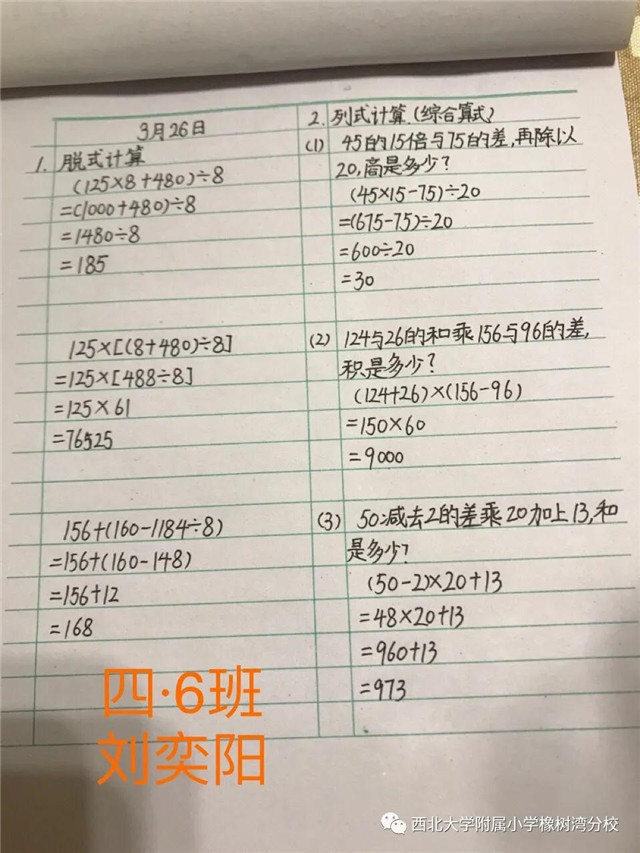 3月26日
1. 脱式计算
(125×8+480)÷8
=(1000+480)÷8
=1480÷8
=185
125×[(8+480)÷8]
=125×[488÷8]
=125×61
=76525
156+(160-1184÷8)
=156+(160-148)
=156+12
=168
2. 列式计算.(综合算式)
(1) 45的15倍与75的差,再除以
20,商是多少?
(45×15-75)÷20
=(675-75)÷20
=600÷20
=30
(2) 124与26的和乘156与96的差,
积是多少?
(124+26)×(156-96)
=150×60
=9000
(3) 50减去2的差乘20加上13,和
是多少?
(50-2)×20+13
=48×20+13
=960+13
=973
四·6班
刘奕阳
西北大学附属小学橡树湾分校